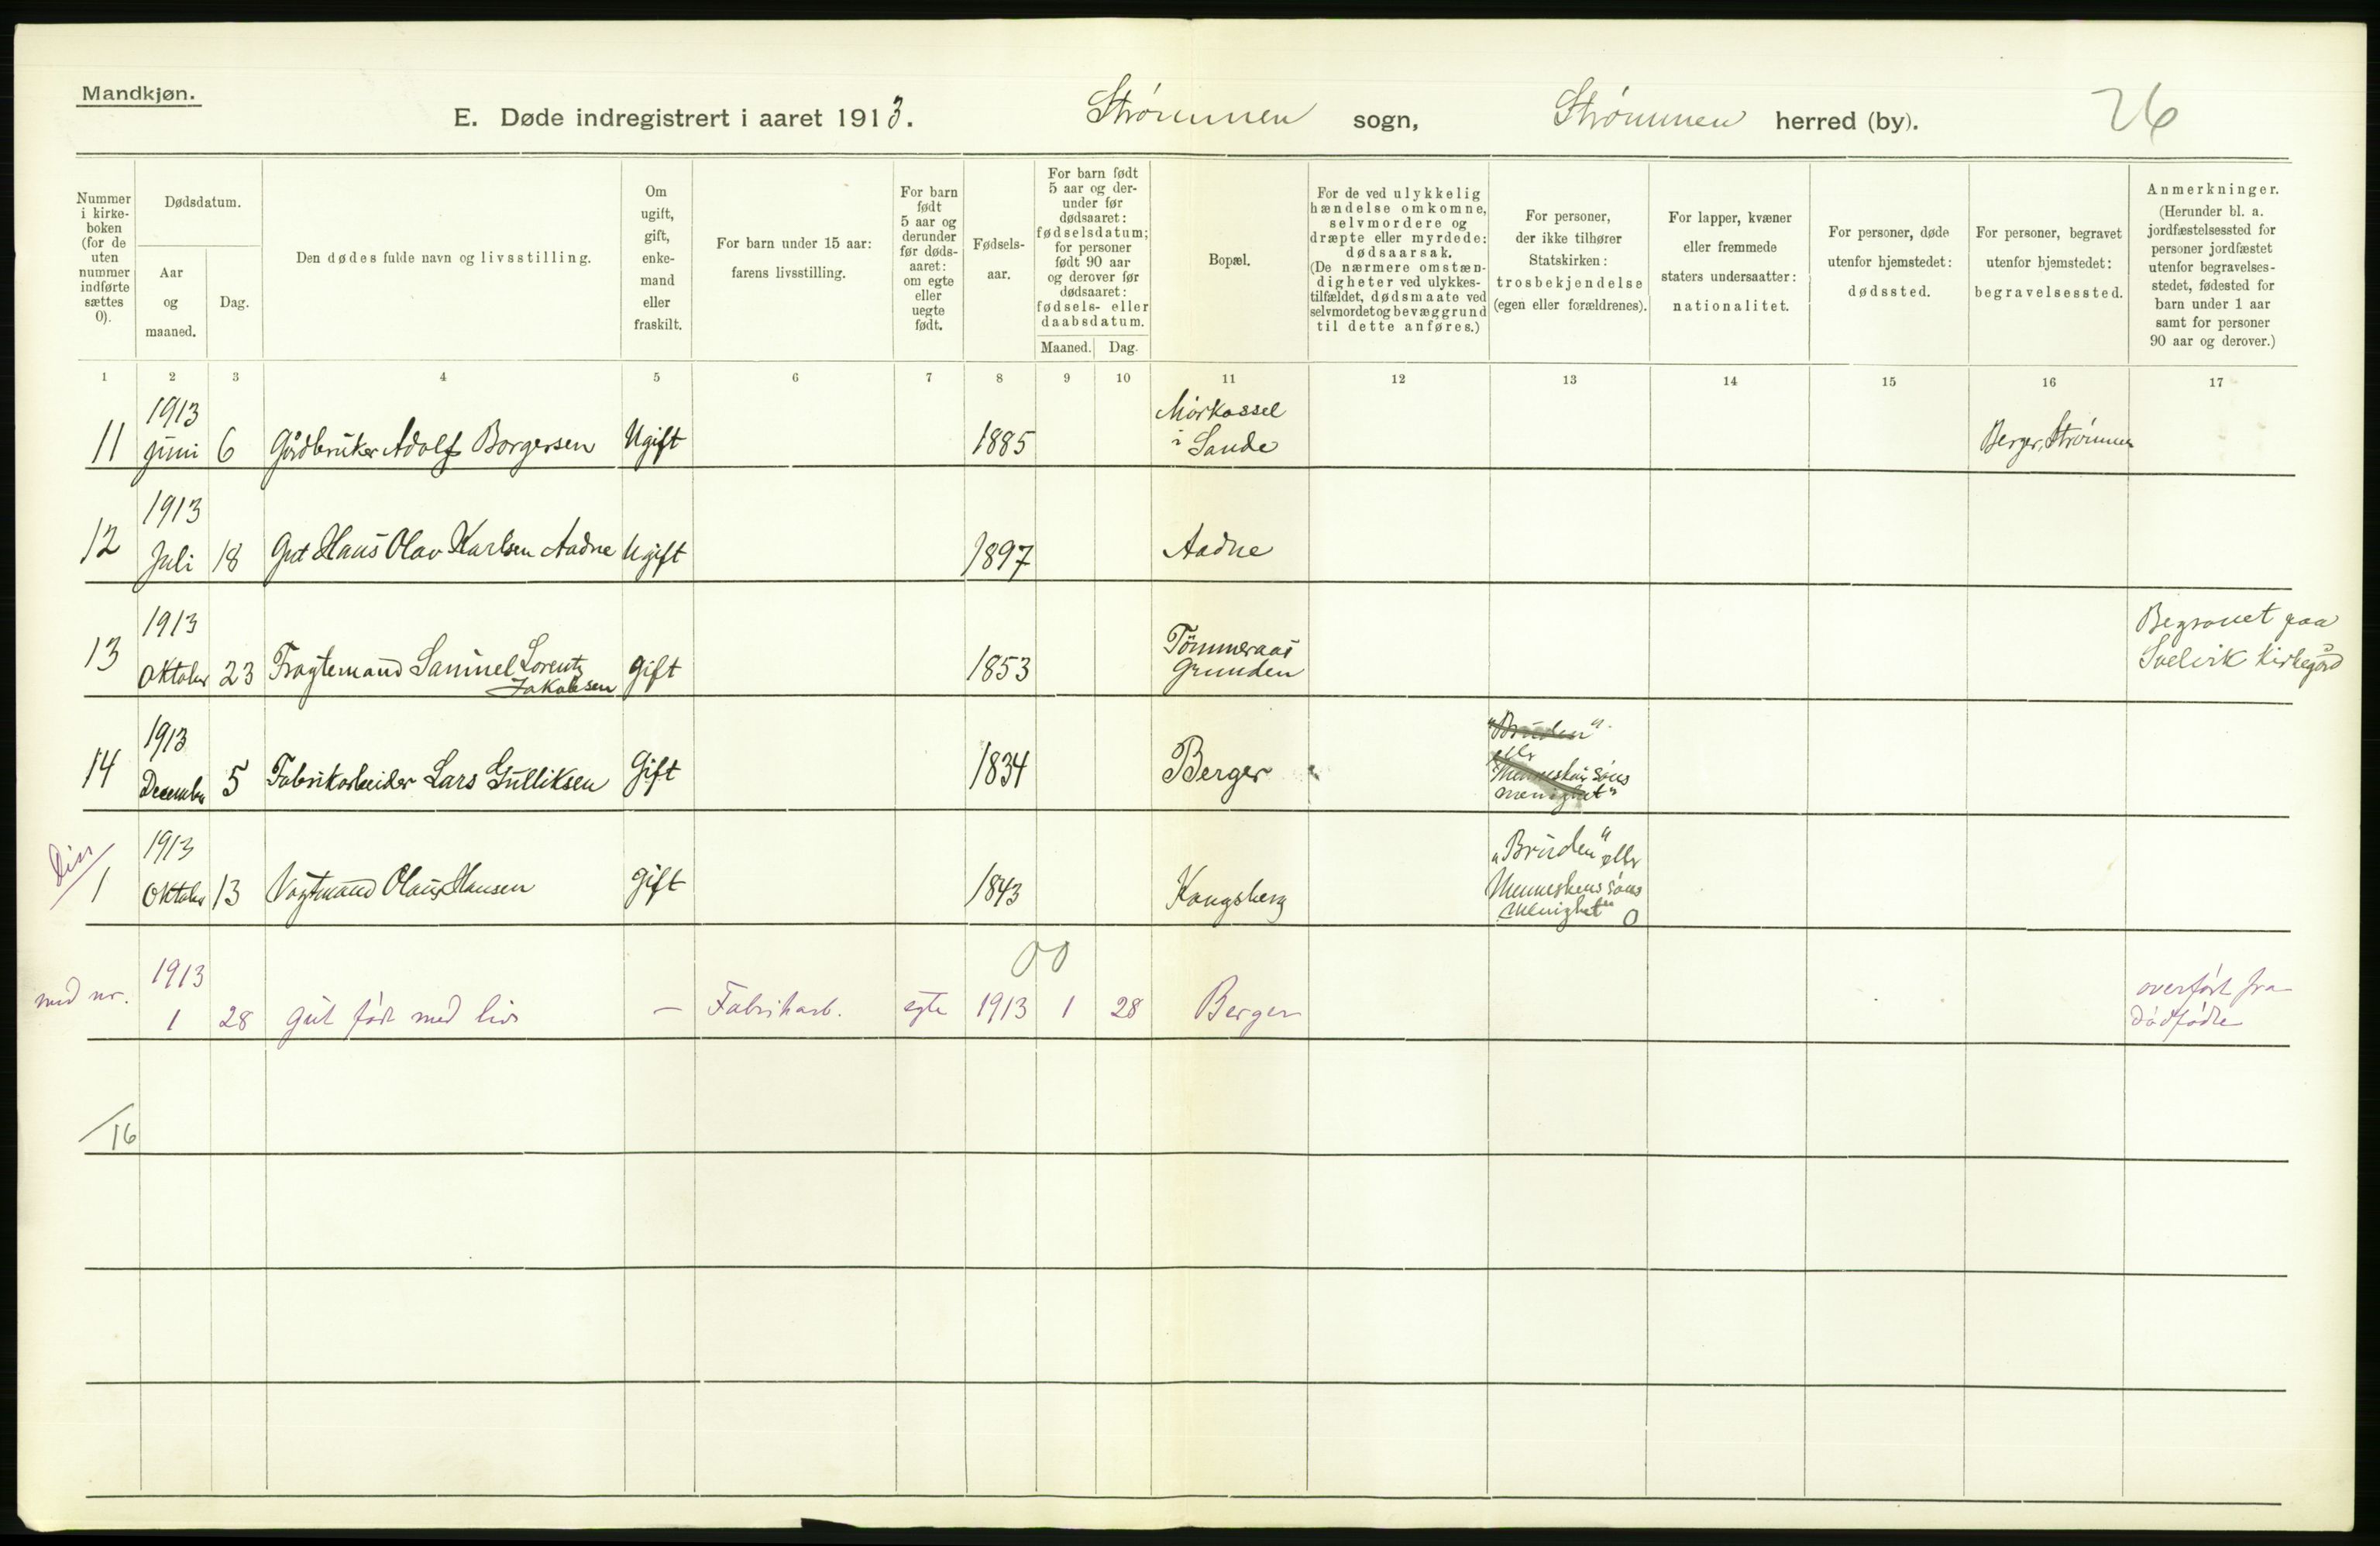 Mandkjøn.
E. Døde indregistrert i aaret 1913. Strømmen sogn, Strømmen herred (by). 26
Nummer i kirke- boken (for de uten nummer indførte sættes 0).
Dødsdatum.
Aar og maaned.
Dag.
Den dødes fulde navn og livsstilling.
Om ugift, gift, enke- mand eller fraskilt.
For barn under 15 aar: farens livsstilling.
For barn født 5 aar og derunder før døds- aaret: om egte eller uegte født.
Fødsels- aar.
For barn født 5 aar og der- under før dødsaaret: fødselsdatum; for personer født 90 aar og derover før dødsaaret: fødsels- eller daabsdatum.
Maaned. Dag.
Bopæl.
For de ved ulykkelig hændelse omkomne, selvmordere og dræpte eller myrdede: dødsaarsak. (De nærmere omstæn- digheter ved ulykkes- tilfældet, dødsmaate ved selvmordet og bevæggrund til dette anføres.)
For personer, der ikke tilhører Statskirken: trosbekjendelse (egen eller forældrenes).
For lapper, kvæner eller fremmede staters undersaatter: nationalitet.
For personer, døde utenfor hjemstedet: dødssted.
For personer, begravet utenfor hjemstedet: begravelsessted.
Anmerkninger. (Herunder bl. a. jordfæstelsessted for personer jordfæstet utenfor begravelses- stedet, fødested for barn under 1 aar samt for personer 90 aar og derover.)
1 2 3 4 5 6 7 8 9 10 11 12 13 14 15 16 17
11 1913 juni 6 Gårdbruker Adolf Borgersen Ugift 1885 Mørkassel i Sande Berger, Strømmen
12 1913 Juli 18 Gut Hans Olav Karlsen Aadne Ugift 1897 Aadne
13 1913 Oktober 23 Fragtemand Samuel Lorentz Jakobsen gift 1853 Tömmeraas Grunden Begravet paa Svelvik Kirkegård
14 1913 December 5 Fabrikarbeider Lars Gulliksen Gift 1834 Berger "Bruden" eller Menneskens Søns menighet"
Diss 1 1913 Oktober 13 Vagtmand Olaus Hansen gift 1843 Kongsberg "Bruden" eller Menneskens søns Menighet" 0
00
med nr. 1913 1 28 gut født med liv — Fabrikarb. egte 1913 1 28 Berger overført fra Dødfødte
16